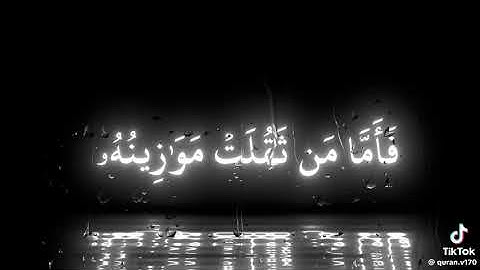 فَأَمَّا مَن ثَقُلَتْ مَوَٰزِينُهُۥ
TikTok
quran.v170